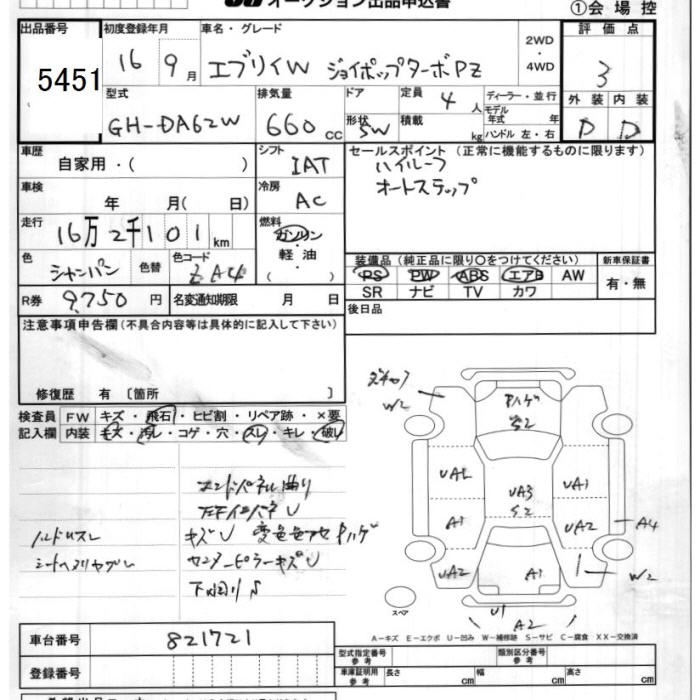 オークション出品申込書
①会場控
出品番号 初度登録年月 車名・グレード 2WD・4WD 評価点
5451 16 9月 エブリイW ジョイポップターボPZ 3
型式 排気量 ドア 定員 4人 ディーラー・並行 外装 内装
GH-DA62W 660cc 形状 5W 積載 kg モデル年式 年 D D
ハンドル 左・右
車歴 自家用・( ) シフト IAT セールスポイント (正常に機能するものに限ります)
ハイルーフ
車検 年 月( 日) 冷房 AC オートステップ
走行 16万2千101km 燃料 ガソリン・軽油・( )
色 シャンパン 色替 色コード ZA4 装備品 (純正品に限り○をつけてください) 新車保証書
PS PW ABS エアB AW 有・無
R券 9,750円 名変通知期限 月 日 SR ナビ TV カワ
注意事項申告欄(不具合内容等は具体的に記入して下さい) 後日品
修復歴 有 〔箇所 〕
検査員 FW キズ・飛石・ヒビ割・リペア跡・×要
記入欄 内装 キズ・汚れ・コゲ・穴・スレ・キレ・破れ
W2
Pハゲ
S2
UA1
UA3
S2
A1
UA2
A4
UA2
A1
W2
U1
A2
スペア
エンドパネル曲り
キズU
ハンドルスレ
センターピラーキズU
下回りS
A-キズ E-エクボ U-凹み W-補修跡 S-サビ C-腐食 XX-交換済
車台番号 821721 型式指定番号 参考 類別区分番号 参考
登録番号 車庫証明用 参考 長さ cm 幅 cm 高さ cm